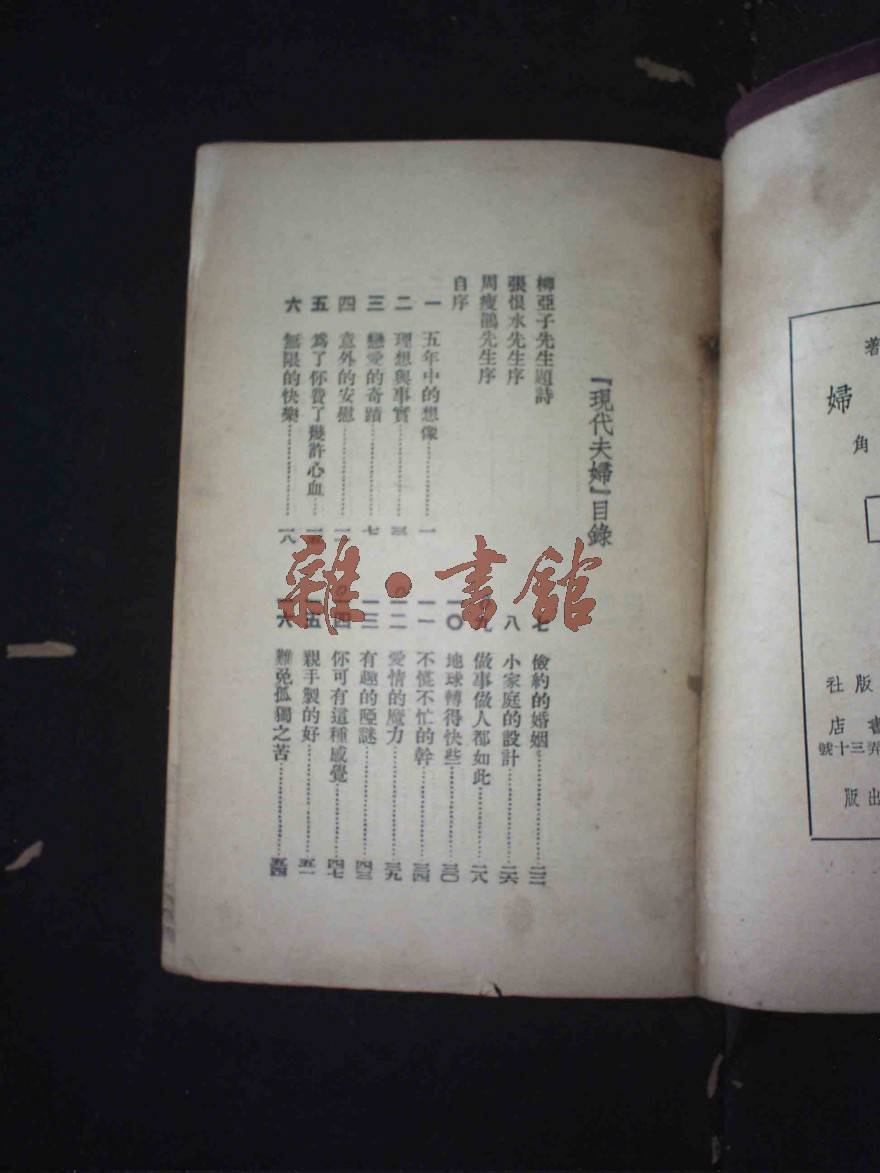 『現代夫婦』目錄
柳亞子先生題詩
張恨水先生序
周瘦鵑先生序
自序
一 五年中的想像 一
二 理想與事實 三
三 戀愛的奇蹟 七
四 意外的安慰
五 爲了你費了幾許心血
六 無限的快樂 一八
七 儉約的婚姻 二二
八 小家庭的設計 二六
九 做事做人都如此 二八
一〇 地球轉得快些 三〇
一一 不慌不忙的幹 三四
一二 愛情的魔力 三九
一三 有趣的啞謎 四三
一四 你可有這種感覺 四七
一五 親手製的好 五一
一六 難免孤獨之苦 五四
雜·書館
著
婦
角
版社
書店
弄三十號
出版